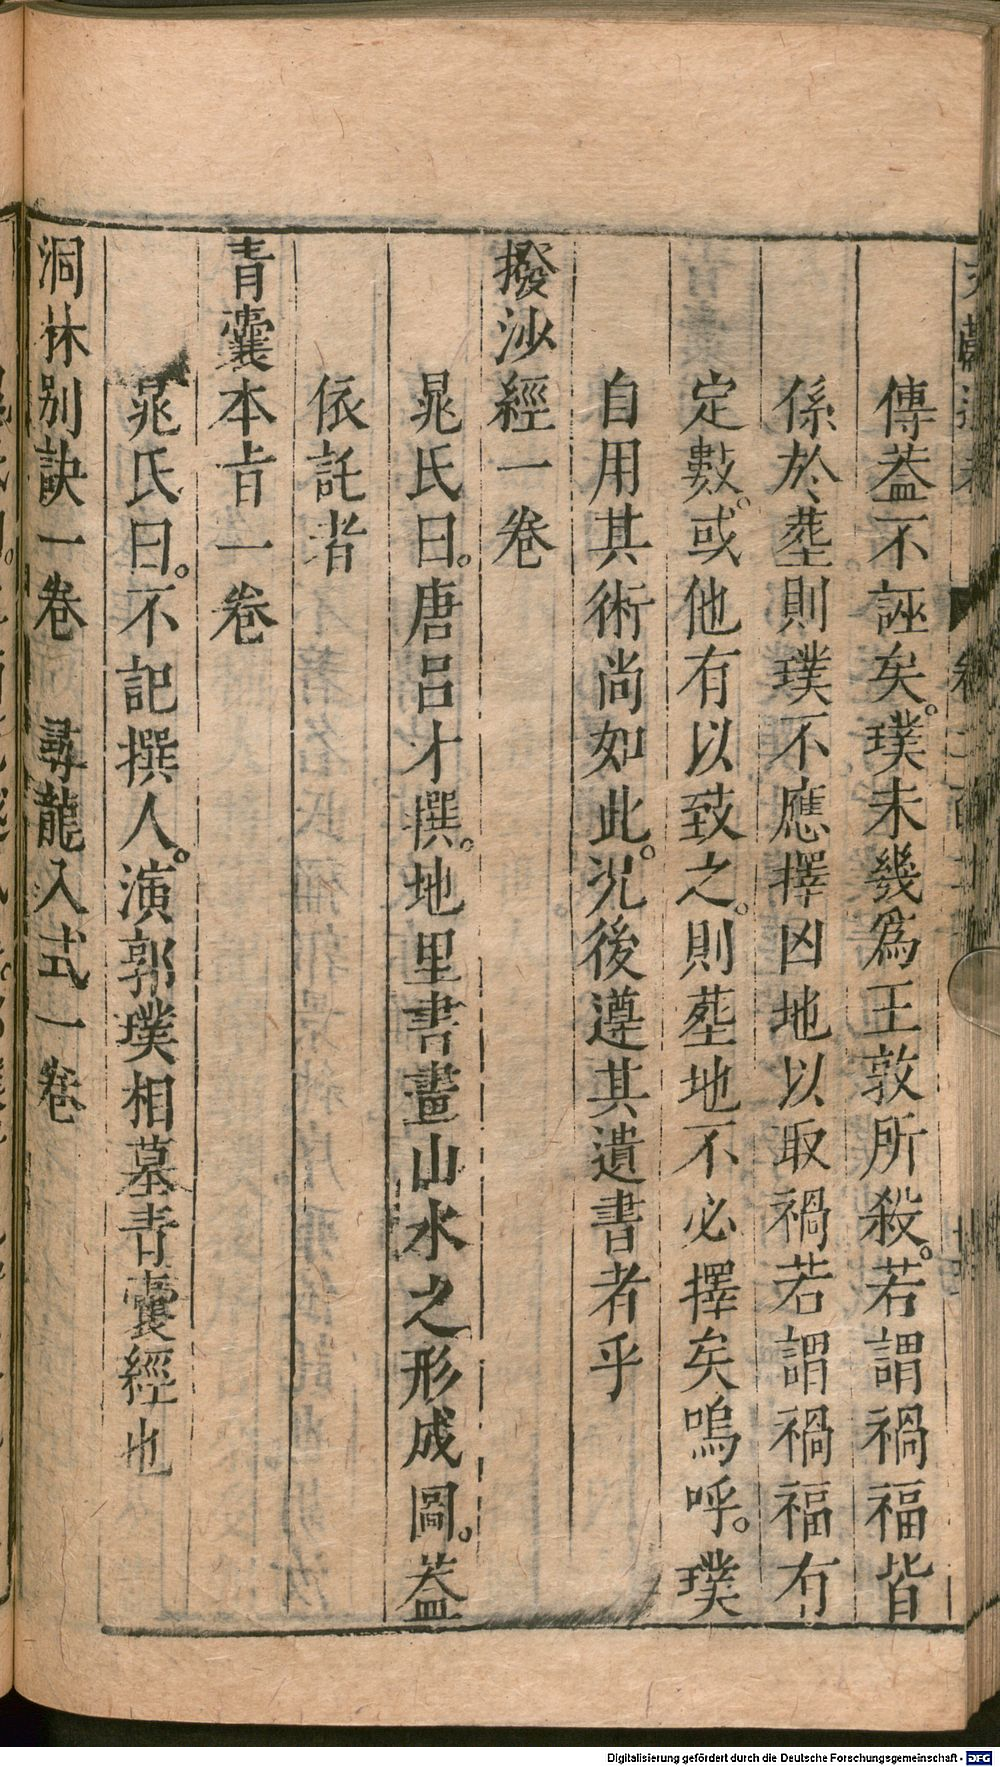 傳葢不誣矣。璞未幾爲王敦所殺。若謂禍福皆
係於塟則璞不應擇凶地以取禍若謂禍福有
定數。或他有以致之。則塟地不必擇矣嗚呼。璞
自用其術尚如此。况後遵其遺書者乎
撥沙經一卷
晁氏曰。唐呂才撰。地里書畫山水之形成圖。葢
依託者
青囊本旨一卷
晁氏曰。不記撰人。演郭璞相墓青囊經也
洞林别訣一卷　尋龍入式一卷
Digitalisierung gefördert durch die Deutsche Forschungsgemeinschaft - DFG